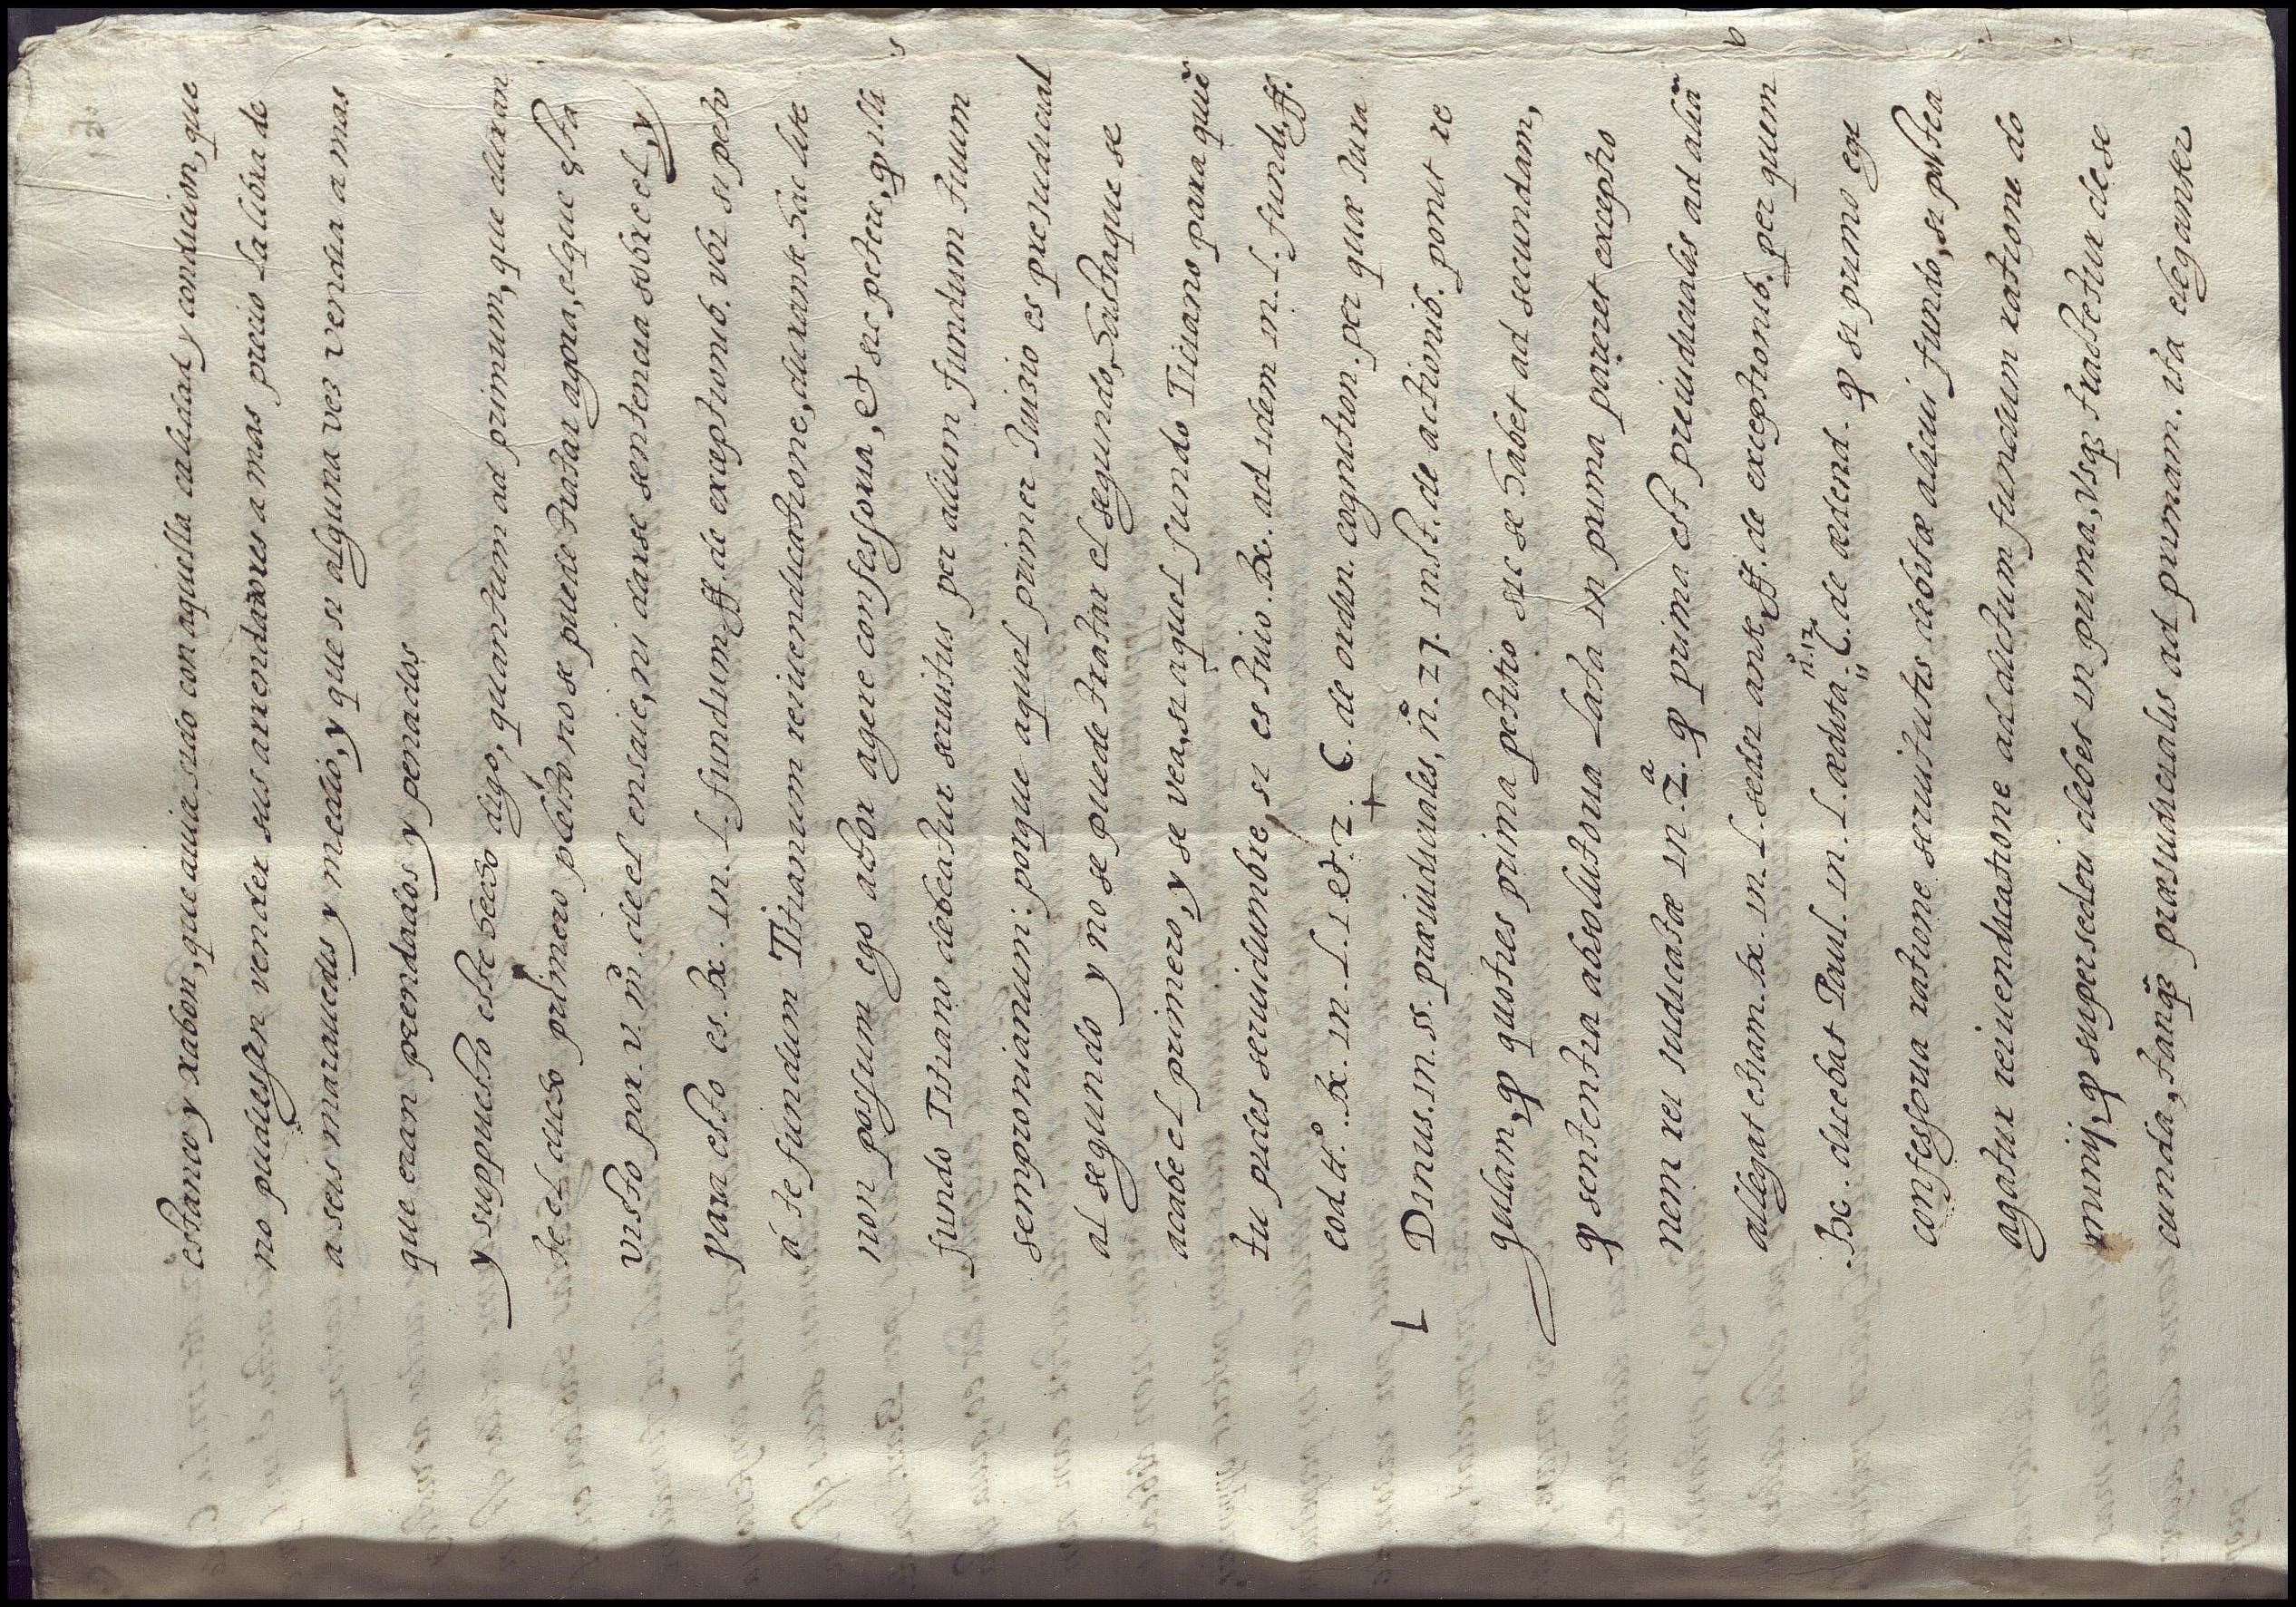 estanco y xabon, que auia sido con aquella calidad y condicion, que
no pudiessen vender sus arrendadores a mas precio la libra de
a seis marauedis y medio, y que si alguna vez vendia a mas
que eran prendados y penados
y suppuesto este hecho digo, quantum ad primum, que duran
te el dicho primero pleito no se puede tratar agora, el que esta
visto por. v. m. de el ensaie, ni darse sentencia sobre el, y
para esto es. tx. in. l. fundum. ff. de exceptionib. vbi si peto
á te fundum Titianum reiuendicatione, durante hac lite
non possum ego actor agere confessoria, et sic petere, qp illi
fundo Titiano debeatur seruitus per alium fundum tuum
sempronianum: porque aquel primer Juizio es prejudicial
al segundo y no se puede tratar el segundo, hasta que se
acabe el primero, y se vea, si aquel fundo Ticiano para que
tu pides seruidumbre, si es tuio. tx. ad idem in. l. fundi. ff.
eod. tt. tx. in. l. 1. et. 2. C. de ordin. cognition. per quæ iura
Dinus. in. ss. præiudiciales, n. 27. inst. de actionib. ponit re
gulam, qp quoties prima petitio sic se habet ad secundam,
qp sententia absolutoria lata in prima pareret exceptio
nem rei iudicatæ in. 2.a qp prima est preiudicialis ad aliã
allegat etiam. tx. in. l. sed si ante ff. de exceptionib. per quem
tx. dicebat Paul. in. l. ædita. n. 12. C. de ædend. qp si primo ego
confessoria ratione seruitutis debitæ alicui fundo, si postea
agatur reiuendicatione ad dictum fundum ratione do
minij, qp supersederi debet in prima, vsq tractetur de se
cunda, tanq præiudicialis ad primam. ita eleganter